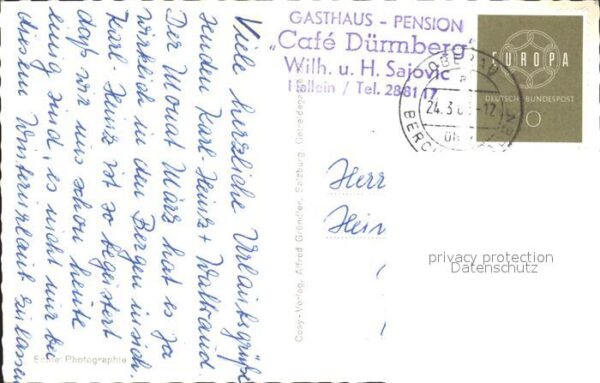 GASTHAUS - PENSION
„Café Dürrnberg"
Wilh. u. H. Sajovic
Hallein / Tel. 2881 17
EUROPA
DEUTSCHE BUNDESPOST
OBERAU
24.3.6
-12
BERCH
Viele herzliche Urlaubsgrüße
senden Karl-Heinz + Waltraud.
Der Monat März hat es ja
wirklich in den Bergen in sich.
Karl-Heinz ist so begeistert
daß wir uns schon heute
einig sind, es nicht nur bei
diesem Winterurlaub zu lassen
Cosy-Verlag, Alfred Gründler, Salzburg,
Echte Photographie
Herr
Hein
privacy protection
Datenschutz